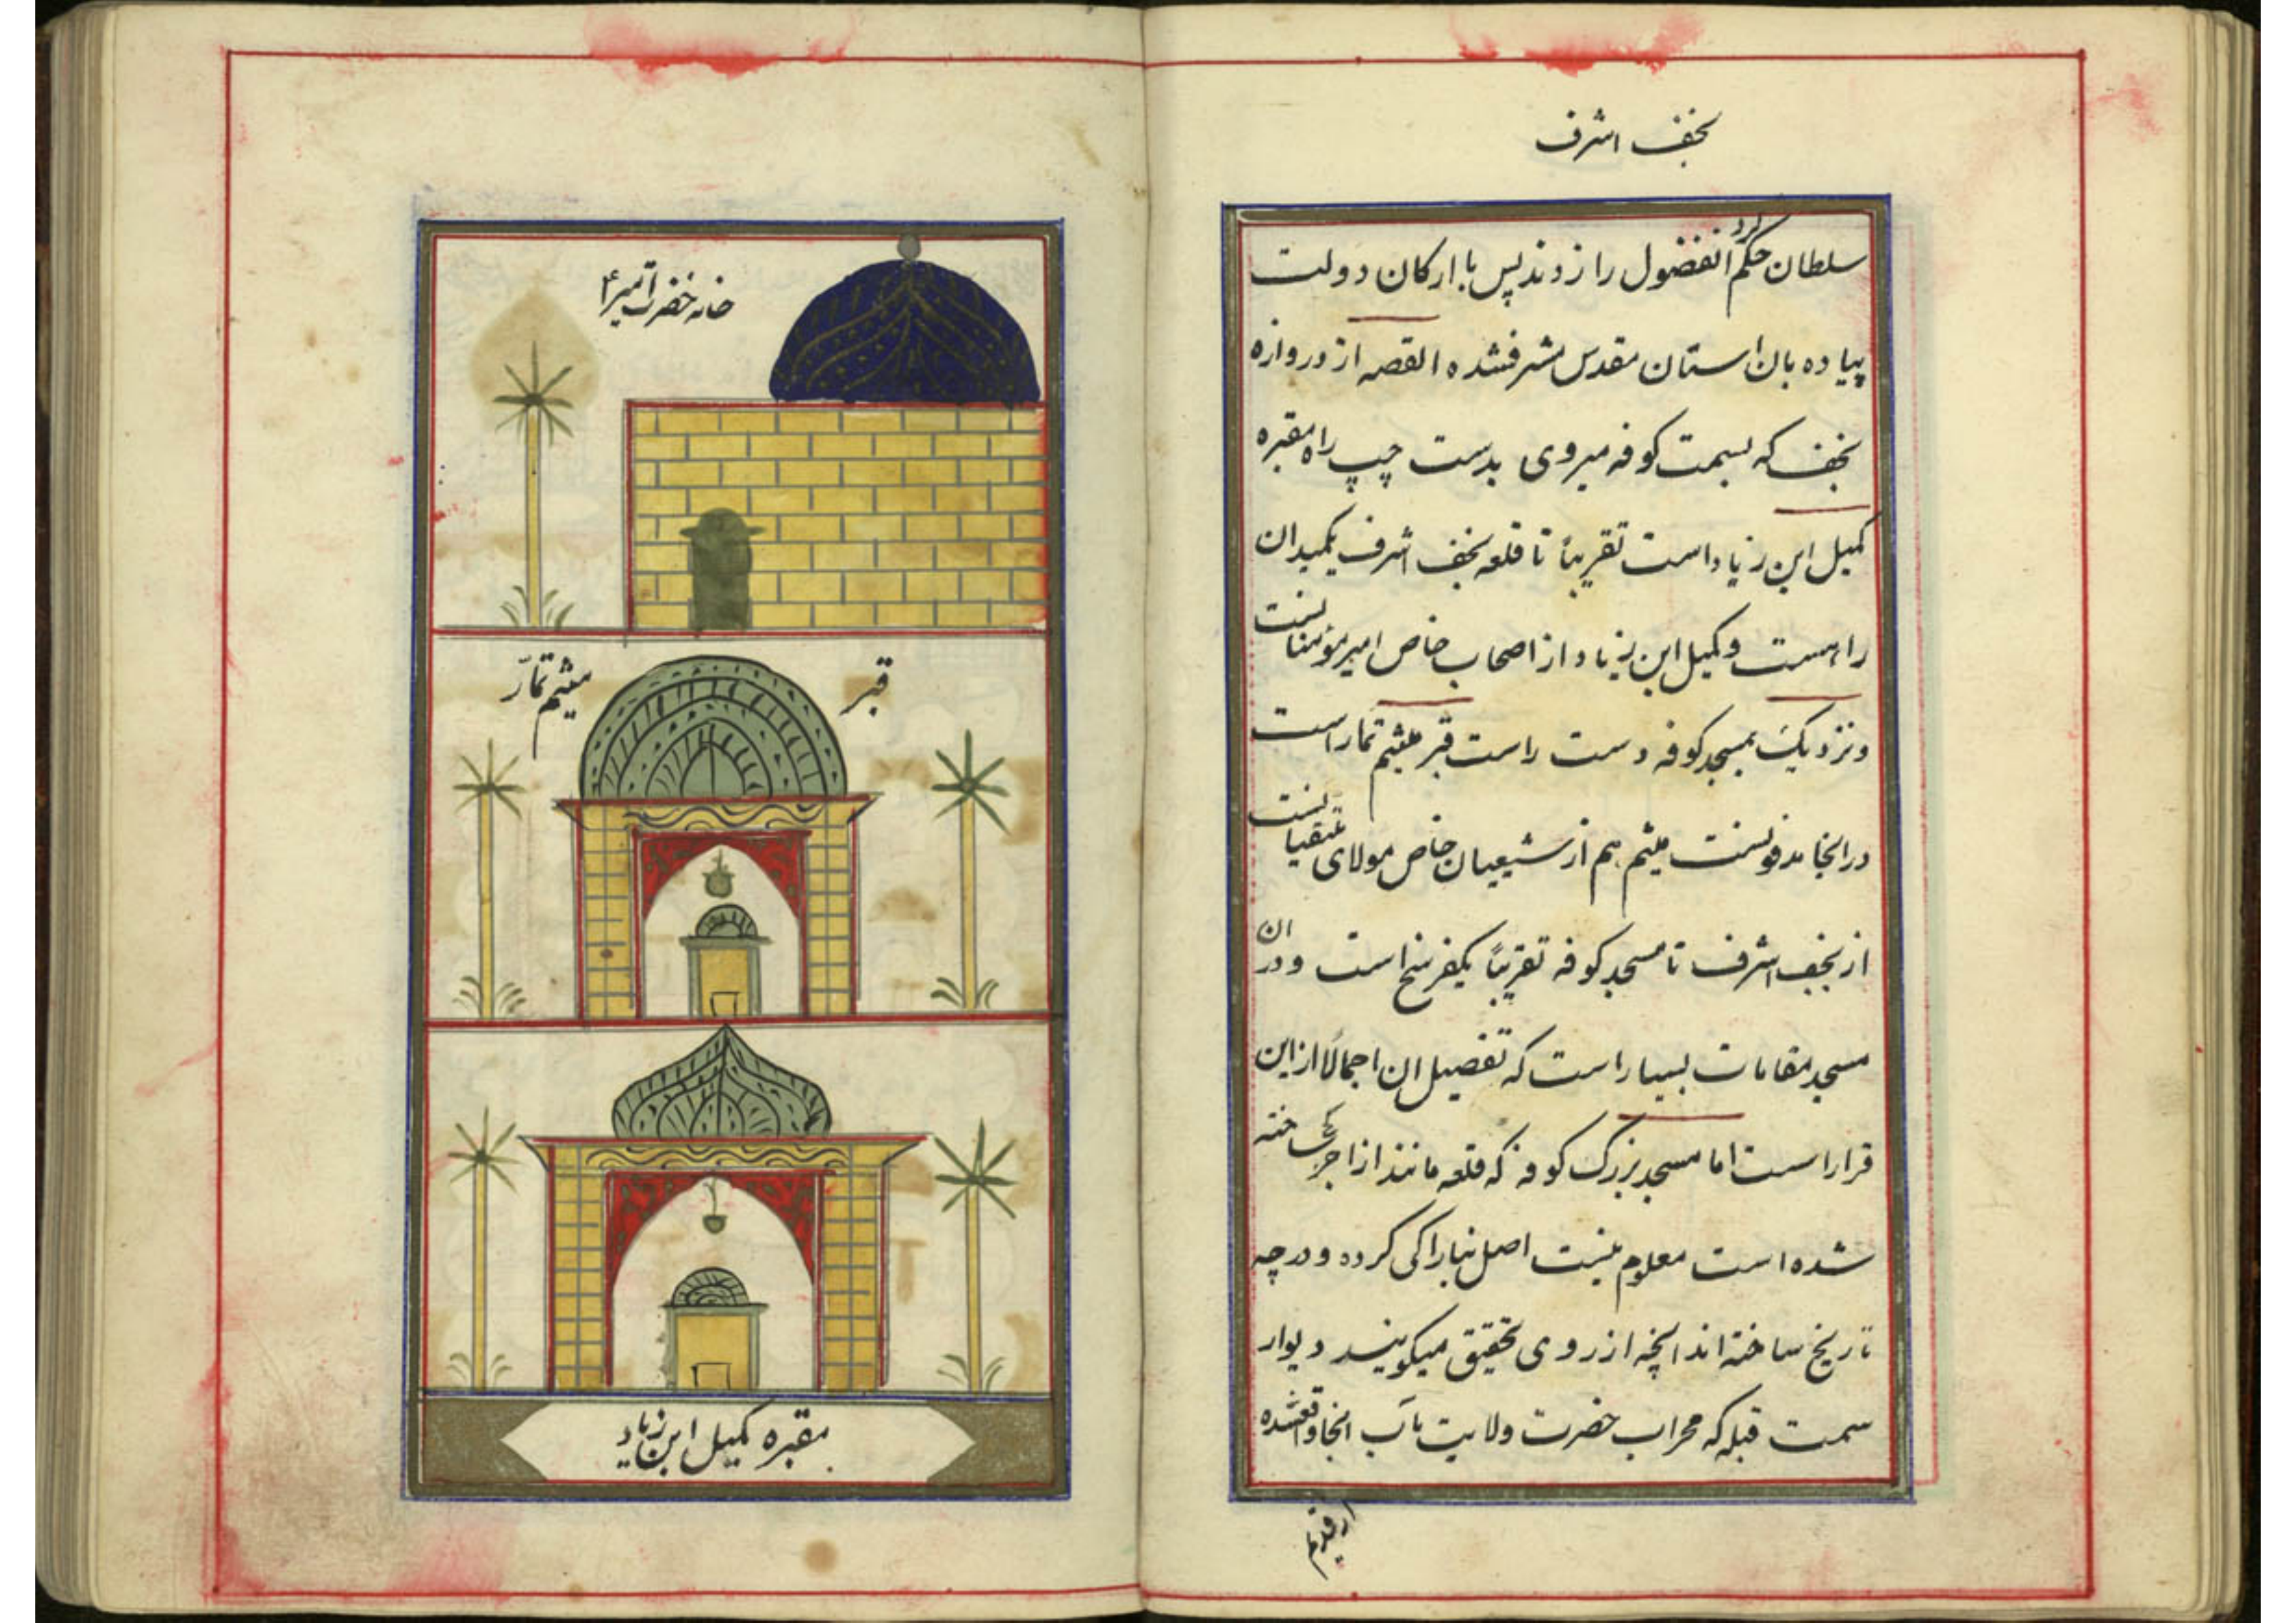 نجف اشرف
سلطان حکم کرد انفضول را زدند پس با ارکان دولت
پیاده بان استان مقدس مشرفشده القصه از دروازه
نجف که بسمت کوفه میروی بدست چپ راه مقبره
کمیل ابن زیاد است تقریباً تا قلعه نجف اشرف یکمیدان
راهست و کمیل ابن زیاد از اصحاب خاص امیر مؤمنانست
و نزدیک بمسجد کوفه دست راست قبر میثم تمار است
در انجا مدفونست میثم هم از شیعیان خاص مولای متقیانست
از نجف اشرف تا مسجد کوفه تقریباً یکفرسخ است و در ان
مسجد مقامات بسیار است که تفصیل ان اجمالاً از این
قرار است اما مسجد بزرگ کوفه که قلعه مانند از اجر و گچ ساخته
شده است معلوم نیست اصل بنا را کی کرده و در چه
تاریخ ساخته اند انچه از روی تحقیق میکویند دیوار
سمت قبله که محراب حضرت ولایت مآب انجا واقعشده
از قدیم
خانه حضرت امیر ع
قبر میثم تمّار
مقبره کمیل ابن زیاد